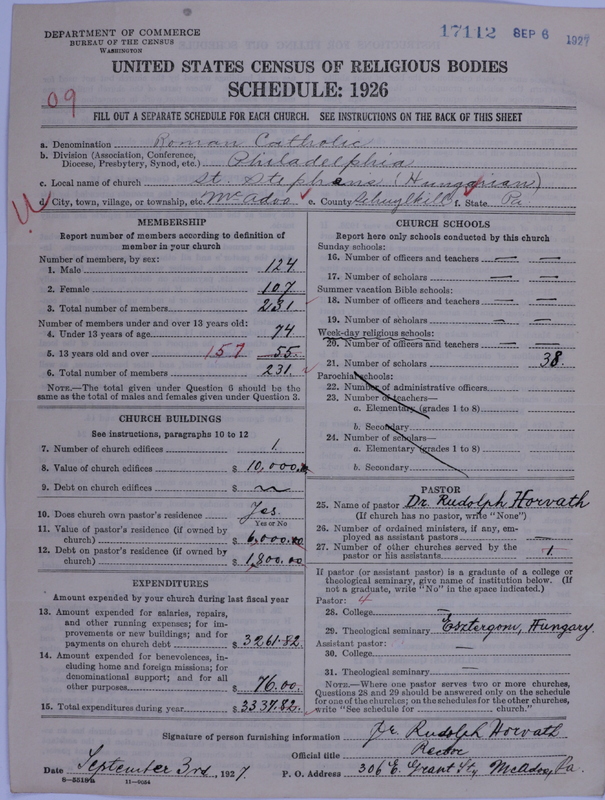 DEPARTMENT OF COMMERCE
BUREAU OF THE CENSUS
WASHINGTON
17112 SEP 6 1927
UNITED STATES CENSUS OF RELIGIOUS BODIES
SCHEDULE: 1926
09
FILL OUT A SEPARATE SCHEDULE FOR EACH CHURCH. SEE INSTRUCTIONS ON THE BACK OF THIS SHEET
a. Denomination Roman Catholic
b. Division (Association, Conference, Diocese, Presbytery, Synod, etc.) Philadelphia
c. Local name of church St. Stephens (Hungarian)
d. City, town, village, or township, etc. McAdoo e. County Schuylkill f. State Pa
MEMBERSHIP
Report number of members according to definition of
member in your church
Number of members, by sex:
1. Male 124
2. Female 107
3. Total number of members 231
Number of members under and over 13 years old:
4. Under 13 years of age 74
5. 13 years old and over 157 55
6. Total number of members 231.
NOTE.—The total given under Question 6 should be
same as the total of males and females given under Question 3.
CHURCH BUILDINGS
See instructions, paragraphs 10 to 12
7. Number of church edifices 1
8. Value of church edifices $ 10,000.
9. Debt on church edifices $ ~
10. Does church own pastor's residence Yes.
Yes or No
11. Value of pastor's residence (if owned by
church) $ 6,000.00
12. Debt on pastor's residence (if owned by
church) $ 1,800.00
EXPENDITURES
Amount expended by your church during last fiscal year
13. Amount expended for salaries, repairs,
and other running expenses; for im-
provements or new buildings; and for
payments on church debt $ 3261.82
14. Amount expended for benevolences, in-
cluding home and foreign missions; for
denominational support; and for all
other purposes $ 76.00.
15. Total expenditures during year $ 3337.82.
CHURCH SCHOOLS
Report here only schools conducted by this church
Sunday schools:
16. Number of officers and teachers — —
17. Number of scholars — —
Summer vacation Bible schools:
18. Number of officers and teachers — —
19. Number of scholars — —
Week-day religious schools:
20. Number of officers and teachers — —
21. Number of scholars 38.
Parochial schools:
22. Number of administrative officers
23. Number of teachers—
a. Elementary (grades 1 to 8)
b. Secondary
24. Number of scholars—
a. Elementary (grades 1 to 8)
b. Secondary
PASTOR
25. Name of pastor Dr. Rudolph Horvath
(If church has no pastor, write "None")
26. Number of ordained ministers, if any, em-
ployed as assistant pastors —
27. Number of other churches served by the
pastor or his assistants 1.
If pastor (or assistant pastor) is a graduate of a college or
theological seminary, give name of institution below. (If
not a graduate, write "No" in the space indicated.)
Pastor: 4
28. College —
29. Theological seminary Esztergom, Hungary.
Assistant pastor:
30. College —
31. Theological seminary —
NOTE.—Where one pastor serves two or more churches,
Questions 28 and 29 should be answered only on the schedule
for one of the churches; on the schedules for the other churches,
write "See schedule for church."
Signature of person furnishing information Dr. Rudolph Horvath
Official title Rector
Date September 3rd, 1927. P. O. Address 306 E. Grant St, McAdoo, Pa.
8-5518a 11-9034